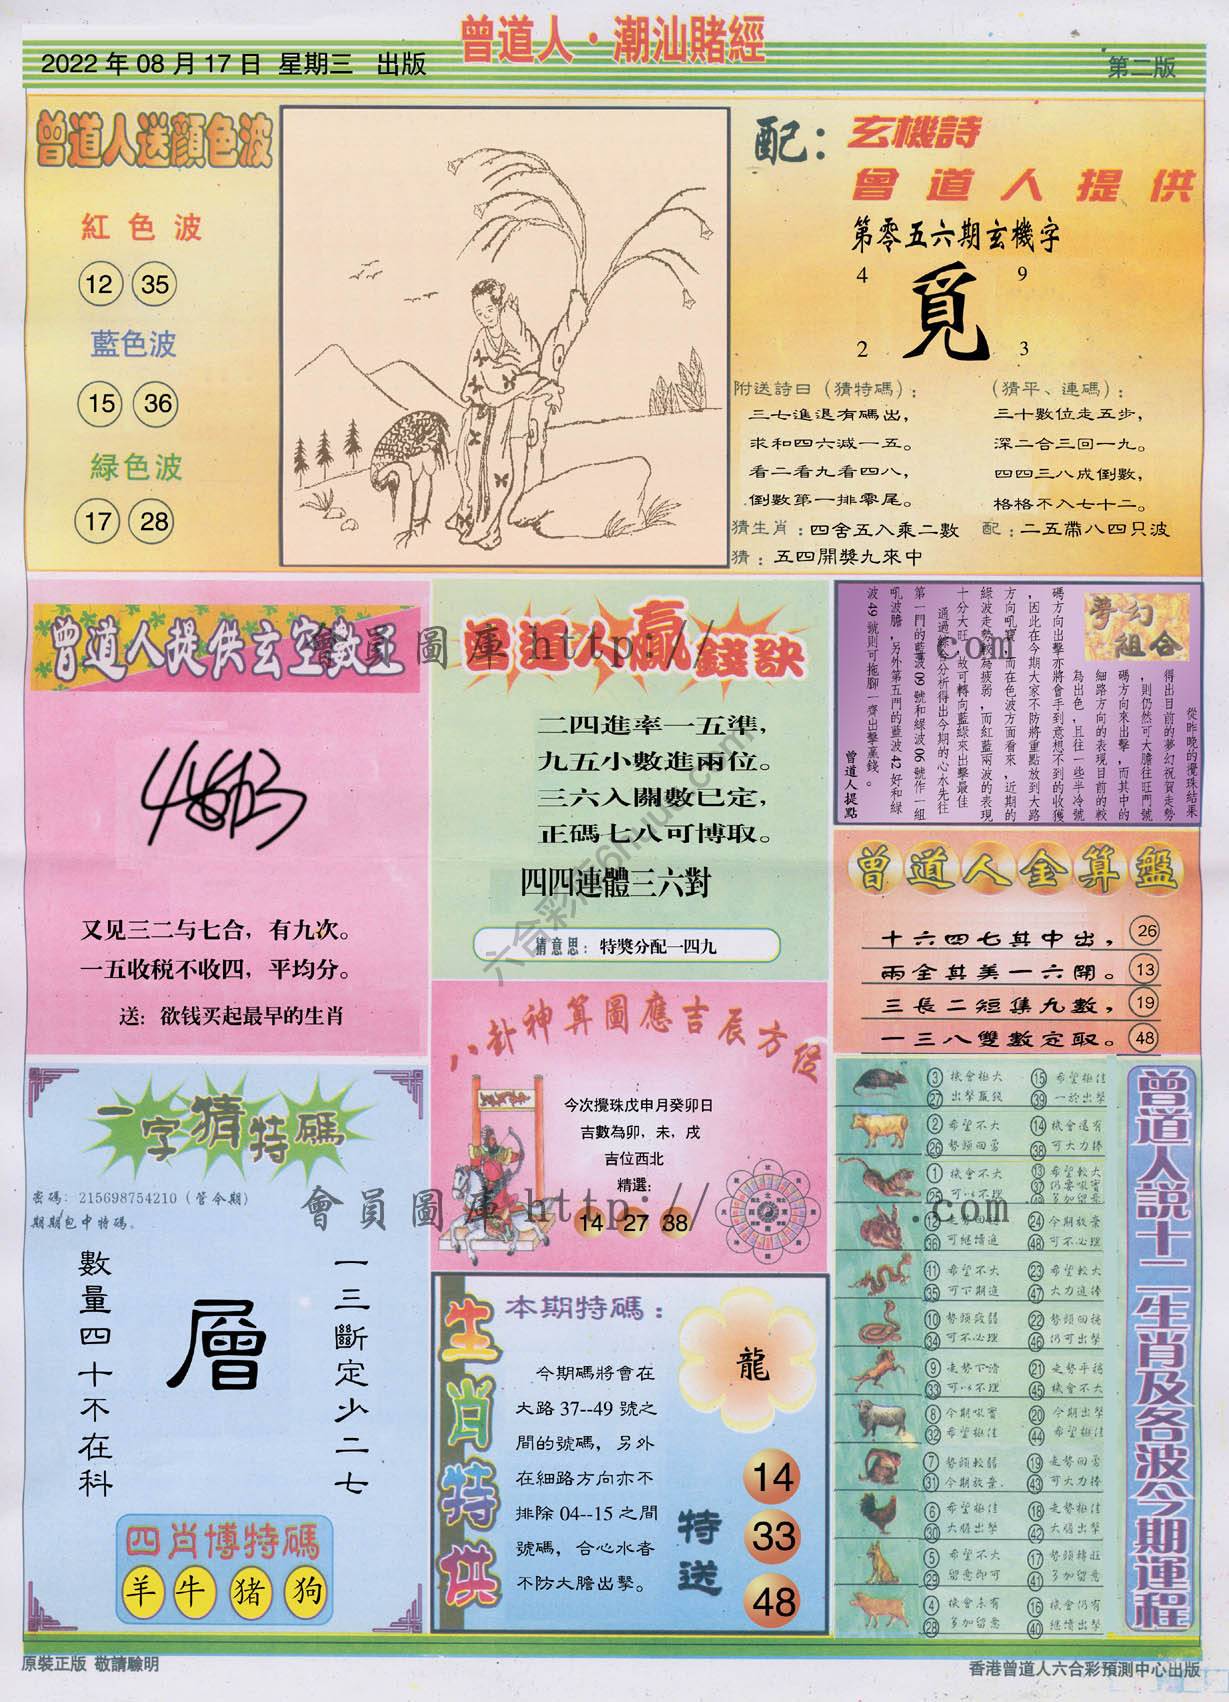 曾道人·潮汕賭經
2022 年 08 月 17 日 星期三 出版
第二版
曾道人送顏色波
紅色波
12 35
藍色波
15 36
綠色波
17 28
配：玄機詩
曾道人提供
第零五六期玄機字
4 9
覓
2 3
附送詩曰（猜特碼）：
三七進退有碼出，
求和四六減一五。
看二看九看四八，
倒數第一排零尾。
（猜平、連碼）：
三十數位走五步，
深二合三回一九。
四四三八成倒數，
格格不入七十二。
猜生肖：四舍五入乘二數 配：二五帶八四只波
猜：五四開獎九來中
曾道人提供玄空數王
又见三二与七合，有九次。
一五收税不收四，平均分。
送：欲钱买起最早的生肖
曾道人贏錢訣
二四進率一五準，
九五小數進兩位。
三六入關數已定，
正碼七八可博取。
四四連體三六對
猜意思：特獎分配一四九
夢幻組合
從昨晚的攪珠結果
得出目前的夢幻祝賀走勢
，則仍然可大膽往旺門號
碼方向來出擊，而其中的
細路方向的表現目前的較
為出色，且往一些半冷號
碼方向出擊亦將會手到意想不到的收獲
，因此在今期大家不防將重點放到大路
方向吼寶，而在色波方面看來，近期的
綠波走勢較為疲弱，而紅藍兩波的表現
十分大旺，故可轉向藍綠來出擊最佳
通過綜合分析得出今期的心水先往
第一門的藍波 09 號和綠波 06 號作一組
吼波膽，另外第五門的藍波 42 好和綠
波 49 號則可拖腳一齊出擊贏錢。
曾道人提點
曾道人金算盤
十六四七其中出， 26
兩全其美一六開。 13
三長二短集九數， 19
一三八雙數定取。 48
八卦神算圖應吉辰方位
今次攪珠戊申月癸卯日
吉數為卯，未，戌
吉位西北
精選：
14 27 38
一字猜特碼
密碼：215698754210（管令期）
期期包中特碼。
一三斷定少二七
層
數量四十不在科
四肖博特碼
羊 牛 猪 狗
生肖特供
本期特碼：
龍
今期碼將會在
大路 37--49 號之
間的號碼，另外
在細路方向亦不
排除 04--15 之間
號碼，合心水者
不防大膽出擊。
特送
14
33
48
曾道人説十二生肖及各波今期運程
3 機會極大 15 希望極佳
27 出擊贏錢 39 一於出擊
2 希望不大 14 機會還有
26 勢頭回勇 38 可大力捧
1 機會不大 13 希望較大
25 可以不理 37 仍要吼實
49 多加留意
12 走勢回旺 24 今期放棄
36 可繼續追 48 可不必理
11 希望不大 23 希望較大
35 可下期追 47 大力追捧
10 勢頭疲弱 22 勢頭回穩
34 可不必理 46 仍可出擊
9 走勢下滑 21 走勢平穩
33 可以不理 45 機會不大
8 今期吼實 20 今期出擊
32 希望極佳 44 希望極佳
7 勢頭較弱 19 走勢回勇
31 今期放棄. 43 可大力捧
6 希望極佳 18 走勢極佳
30 大膽出擊 42 大膽出擊
5 希望不大 17 勢頭轉旺
29 留意即可 41 多加留意
4 機會未有 16 機會仍有
28 多加留意 40 繼續出擊
會員圖庫 http:// .com
會員圖庫 http:// .com
原裝正版 敬請驗明
香港曾道人六合彩預測中心出版